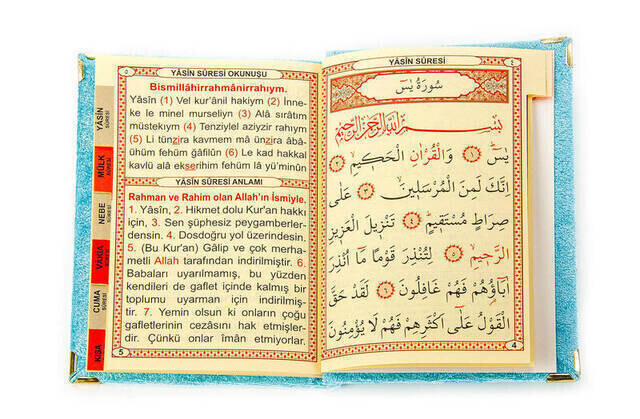 YÂSİN SÛRESİ
٤
سُورَةُ يٰسٓ
بِسْمِ اللّٰهِ الرَّحْمٰنِ الرَّحِيمِ
يٰسٓ ﴿١﴾ وَالْقُرْاٰنِ الْحَكِيمِ ﴿٢﴾
اِنَّكَ لَمِنَ الْمُرْسَلِينَ ﴿٣﴾ عَلٰى
صِرَاطٍ مُسْتَقِيمٍ ﴿٤﴾ تَنْزِيلَ الْعَزِيزِ
الرَّحِيمِ ﴿٥﴾ لِتُنْذِرَ قَوْمًا مَا اُنْذِرَ
اٰبَاؤُهُمْ فَهُمْ غَافِلُونَ ﴿٦﴾ لَقَدْ حَقَّ
الْقَوْلُ عَلٰى اَكْثَرِهِمْ فَهُمْ لَا يُؤْمِنُونَ
4
٥
YÂSİN SÛRESİ OKUNUŞU
Bismillâhirrahmânirrahıym.
Yâsîn (1) Vel kur'ânil hakiym (2) İnne-
ke le minel murseliyn (3) Alâ sıratım
müstekıym (4) Tenziylel aziyzir rahıym
(5) Li tünzira kavmem mâ ünzira âbâ-
ühüm fehüm ğâfilûn (6) Le kad hakkal
kavlü alâ ekserihim fehüm lâ yü'minûn
YÂSİN SÛRESİ ANLAMI
Rahman ve Rahim olan Allah'ın İsmiyle.
1. Yâsîn, 2. Hikmet dolu Kur'an hakkı
için, 3. Sen şüphesiz peygamberler-
densin. 4. Dosdoğru yol üzerindesin.
5. (Bu Kur'an) Gâlip ve çok merha-
metli Allah tarafından indirilmiştir. 6.
Babaları uyarılmamış, bu yüzden
kendileri de gaflet içinde kalmış bir
toplumu uyarman için indirilmiş-
tir. 7. Yemin olsun ki onların çoğu
gafletlerinin cezâsını hak etmişler-
dir. Çünkü onlar îman etmiyorlar.
5
YÂSİN
SÛRESİ
MÜLK
SÛRESİ
NEBE
SÛRESİ
VÂKIA
SÛRESİ
CUMA
SÛRESİ
KISA